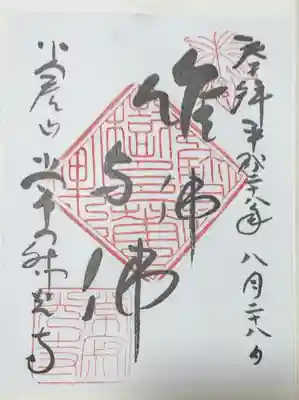 奉拝 平成二十八年 八月二十八日
唯佛
与佛
小倉山 常寂光寺